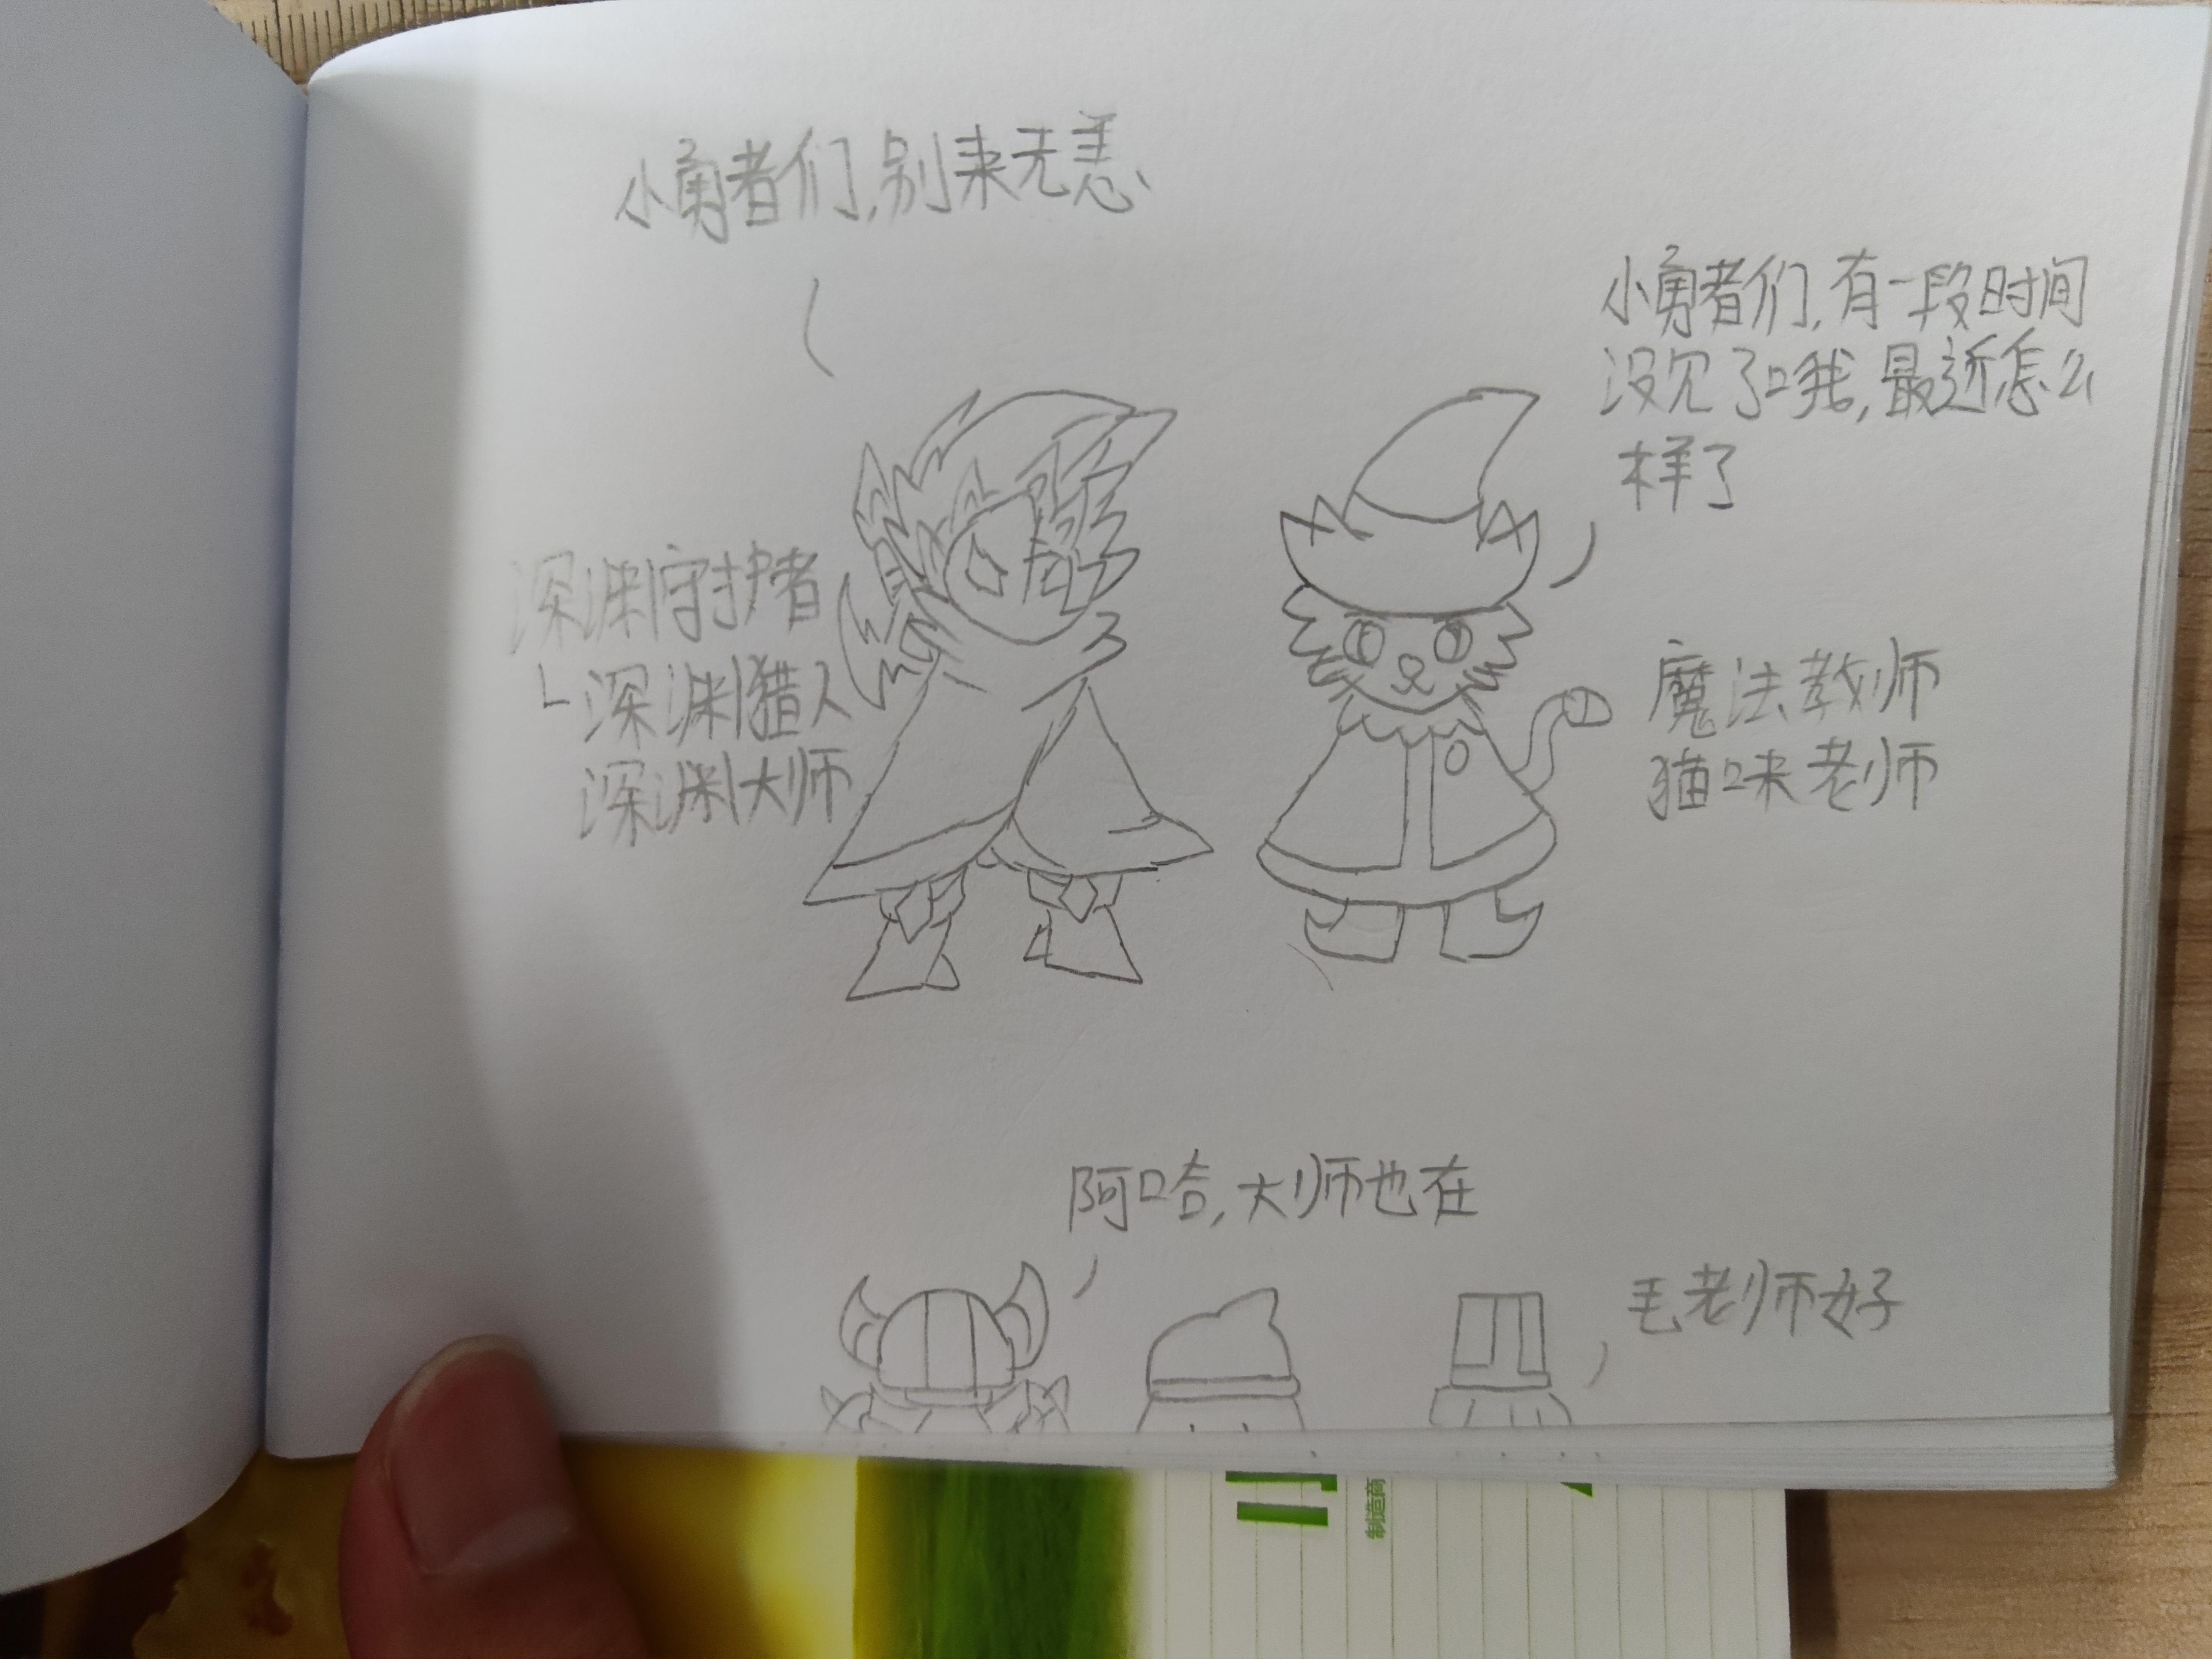 小勇者们,别来无恙
小勇者们,有一段时间
没见了哦,最近怎么
样了
深渊守护者
深渊猎人
深渊大师
魔法教师
猫咪老师
阿哈,大师也在
毛老师好
制造商